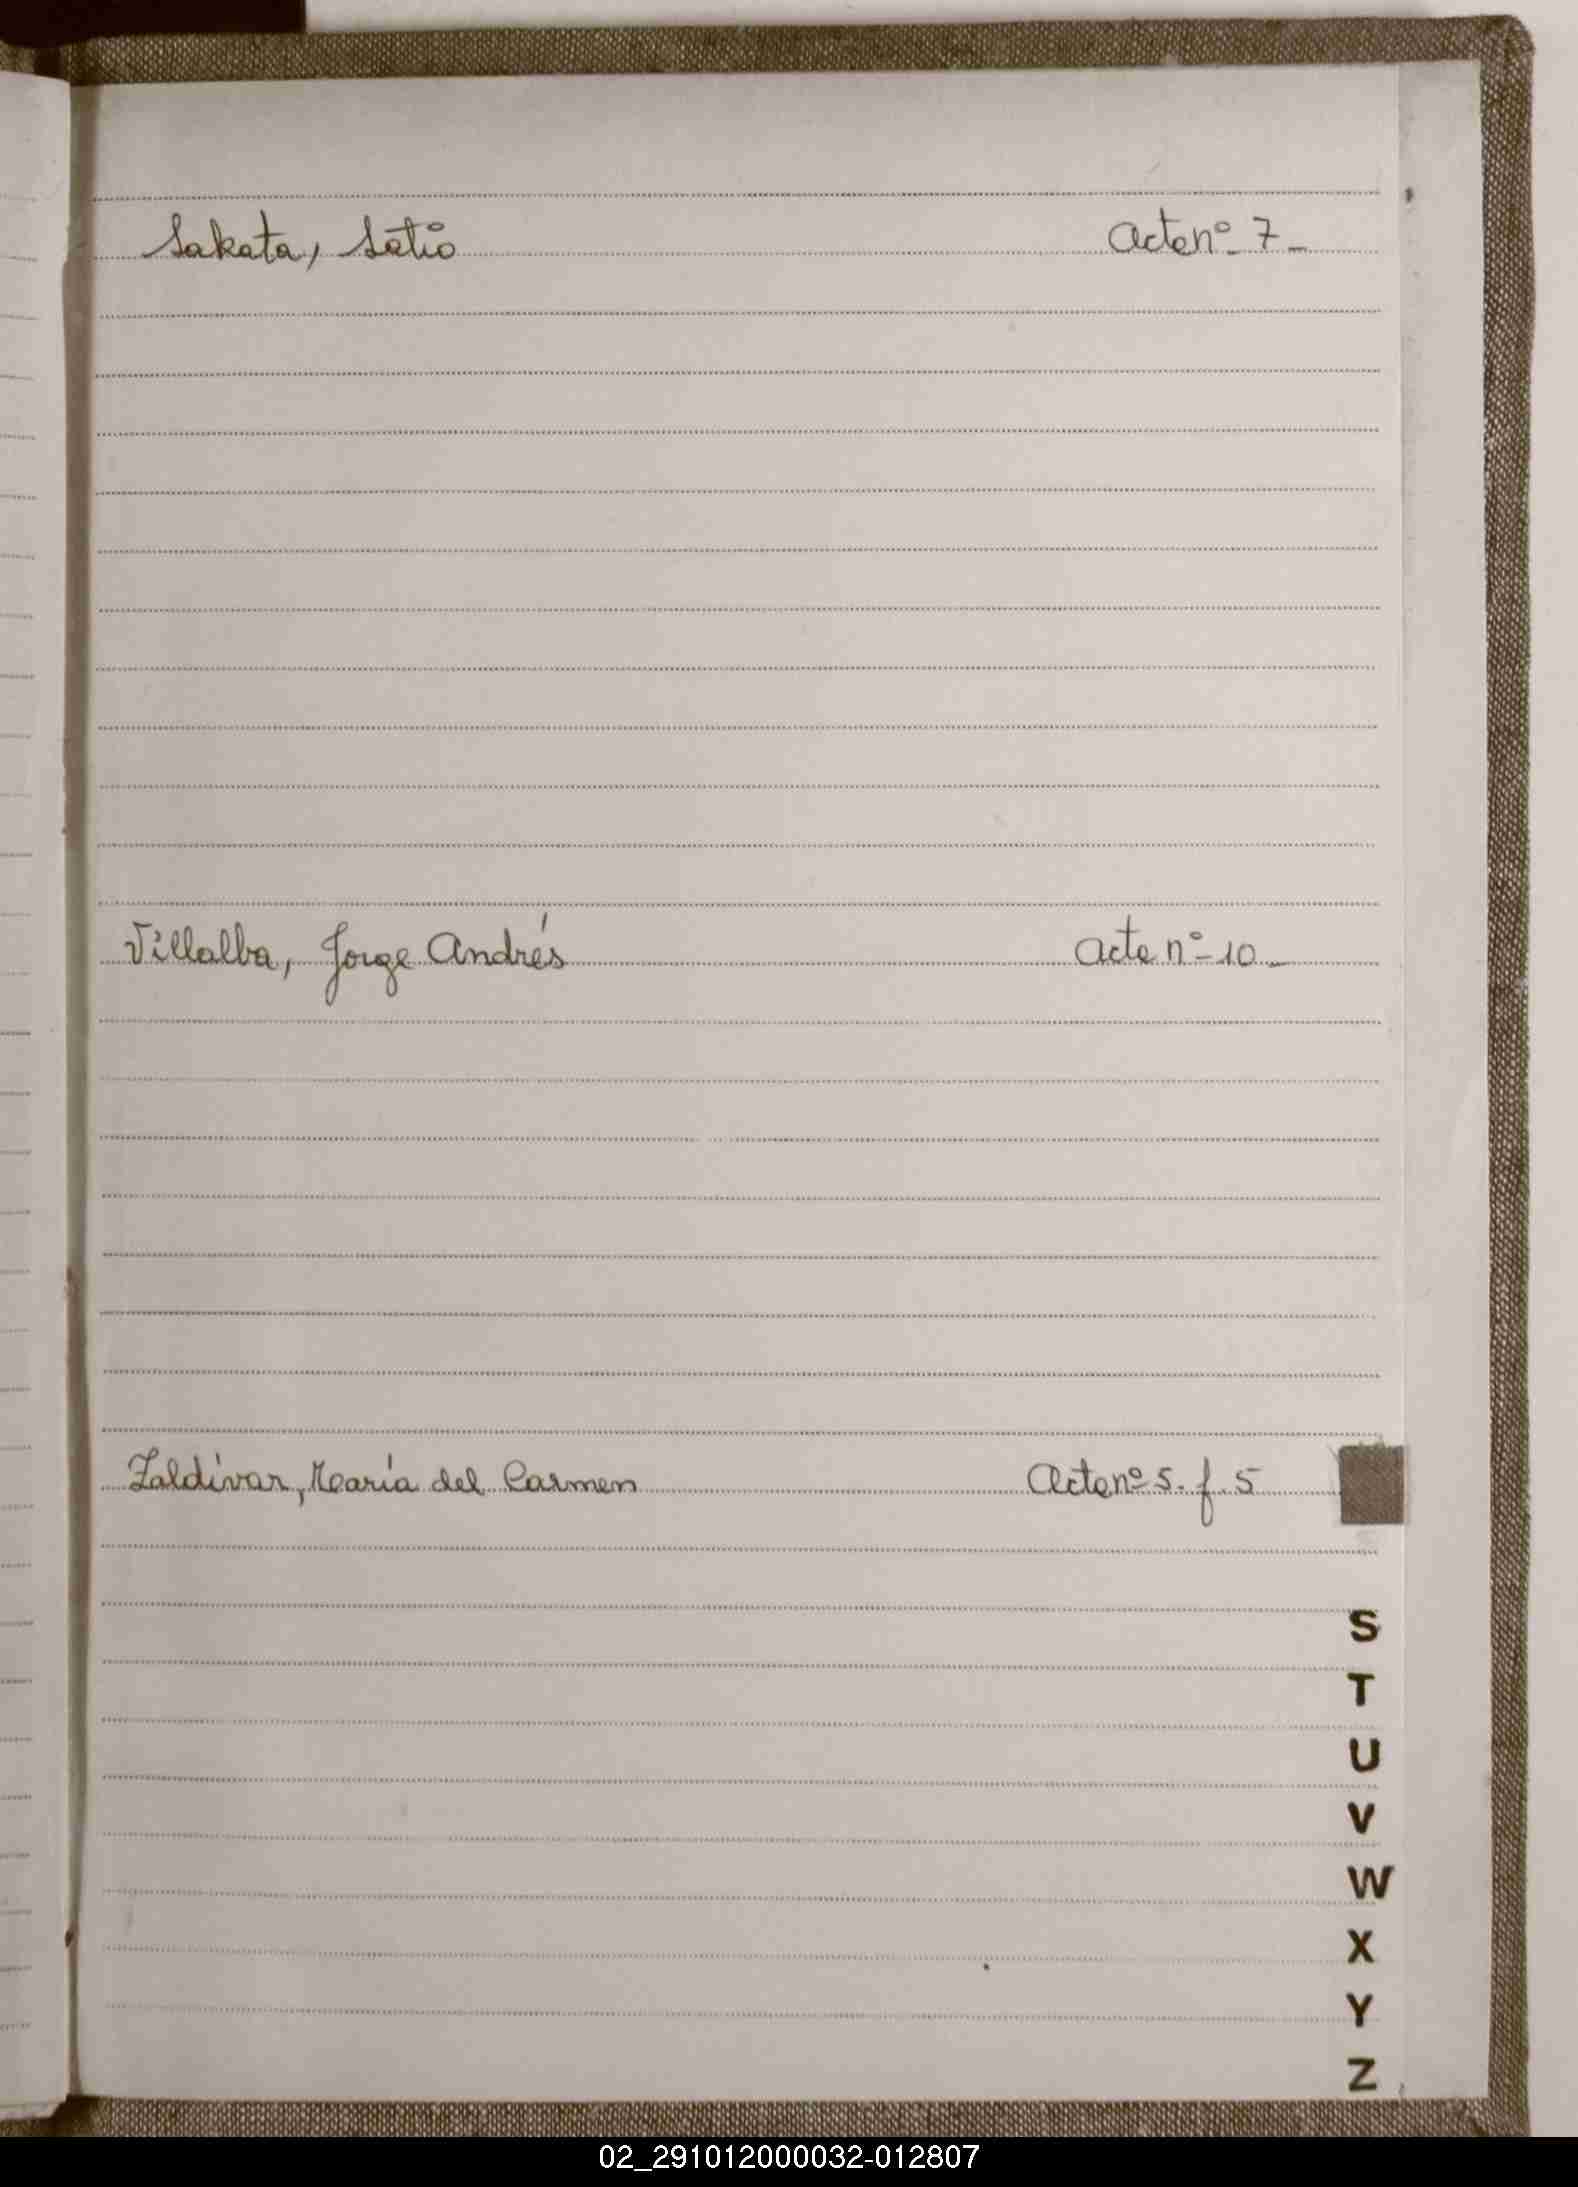 Sakata, Satio Acta nº 7-
Villalba, Jorge Andrés Acta nº 10-
Zaldívar, María del Carmen Acta nº 5. f. 5
S
T
U
V
W
X
Y
Z
02_291012000032-012807